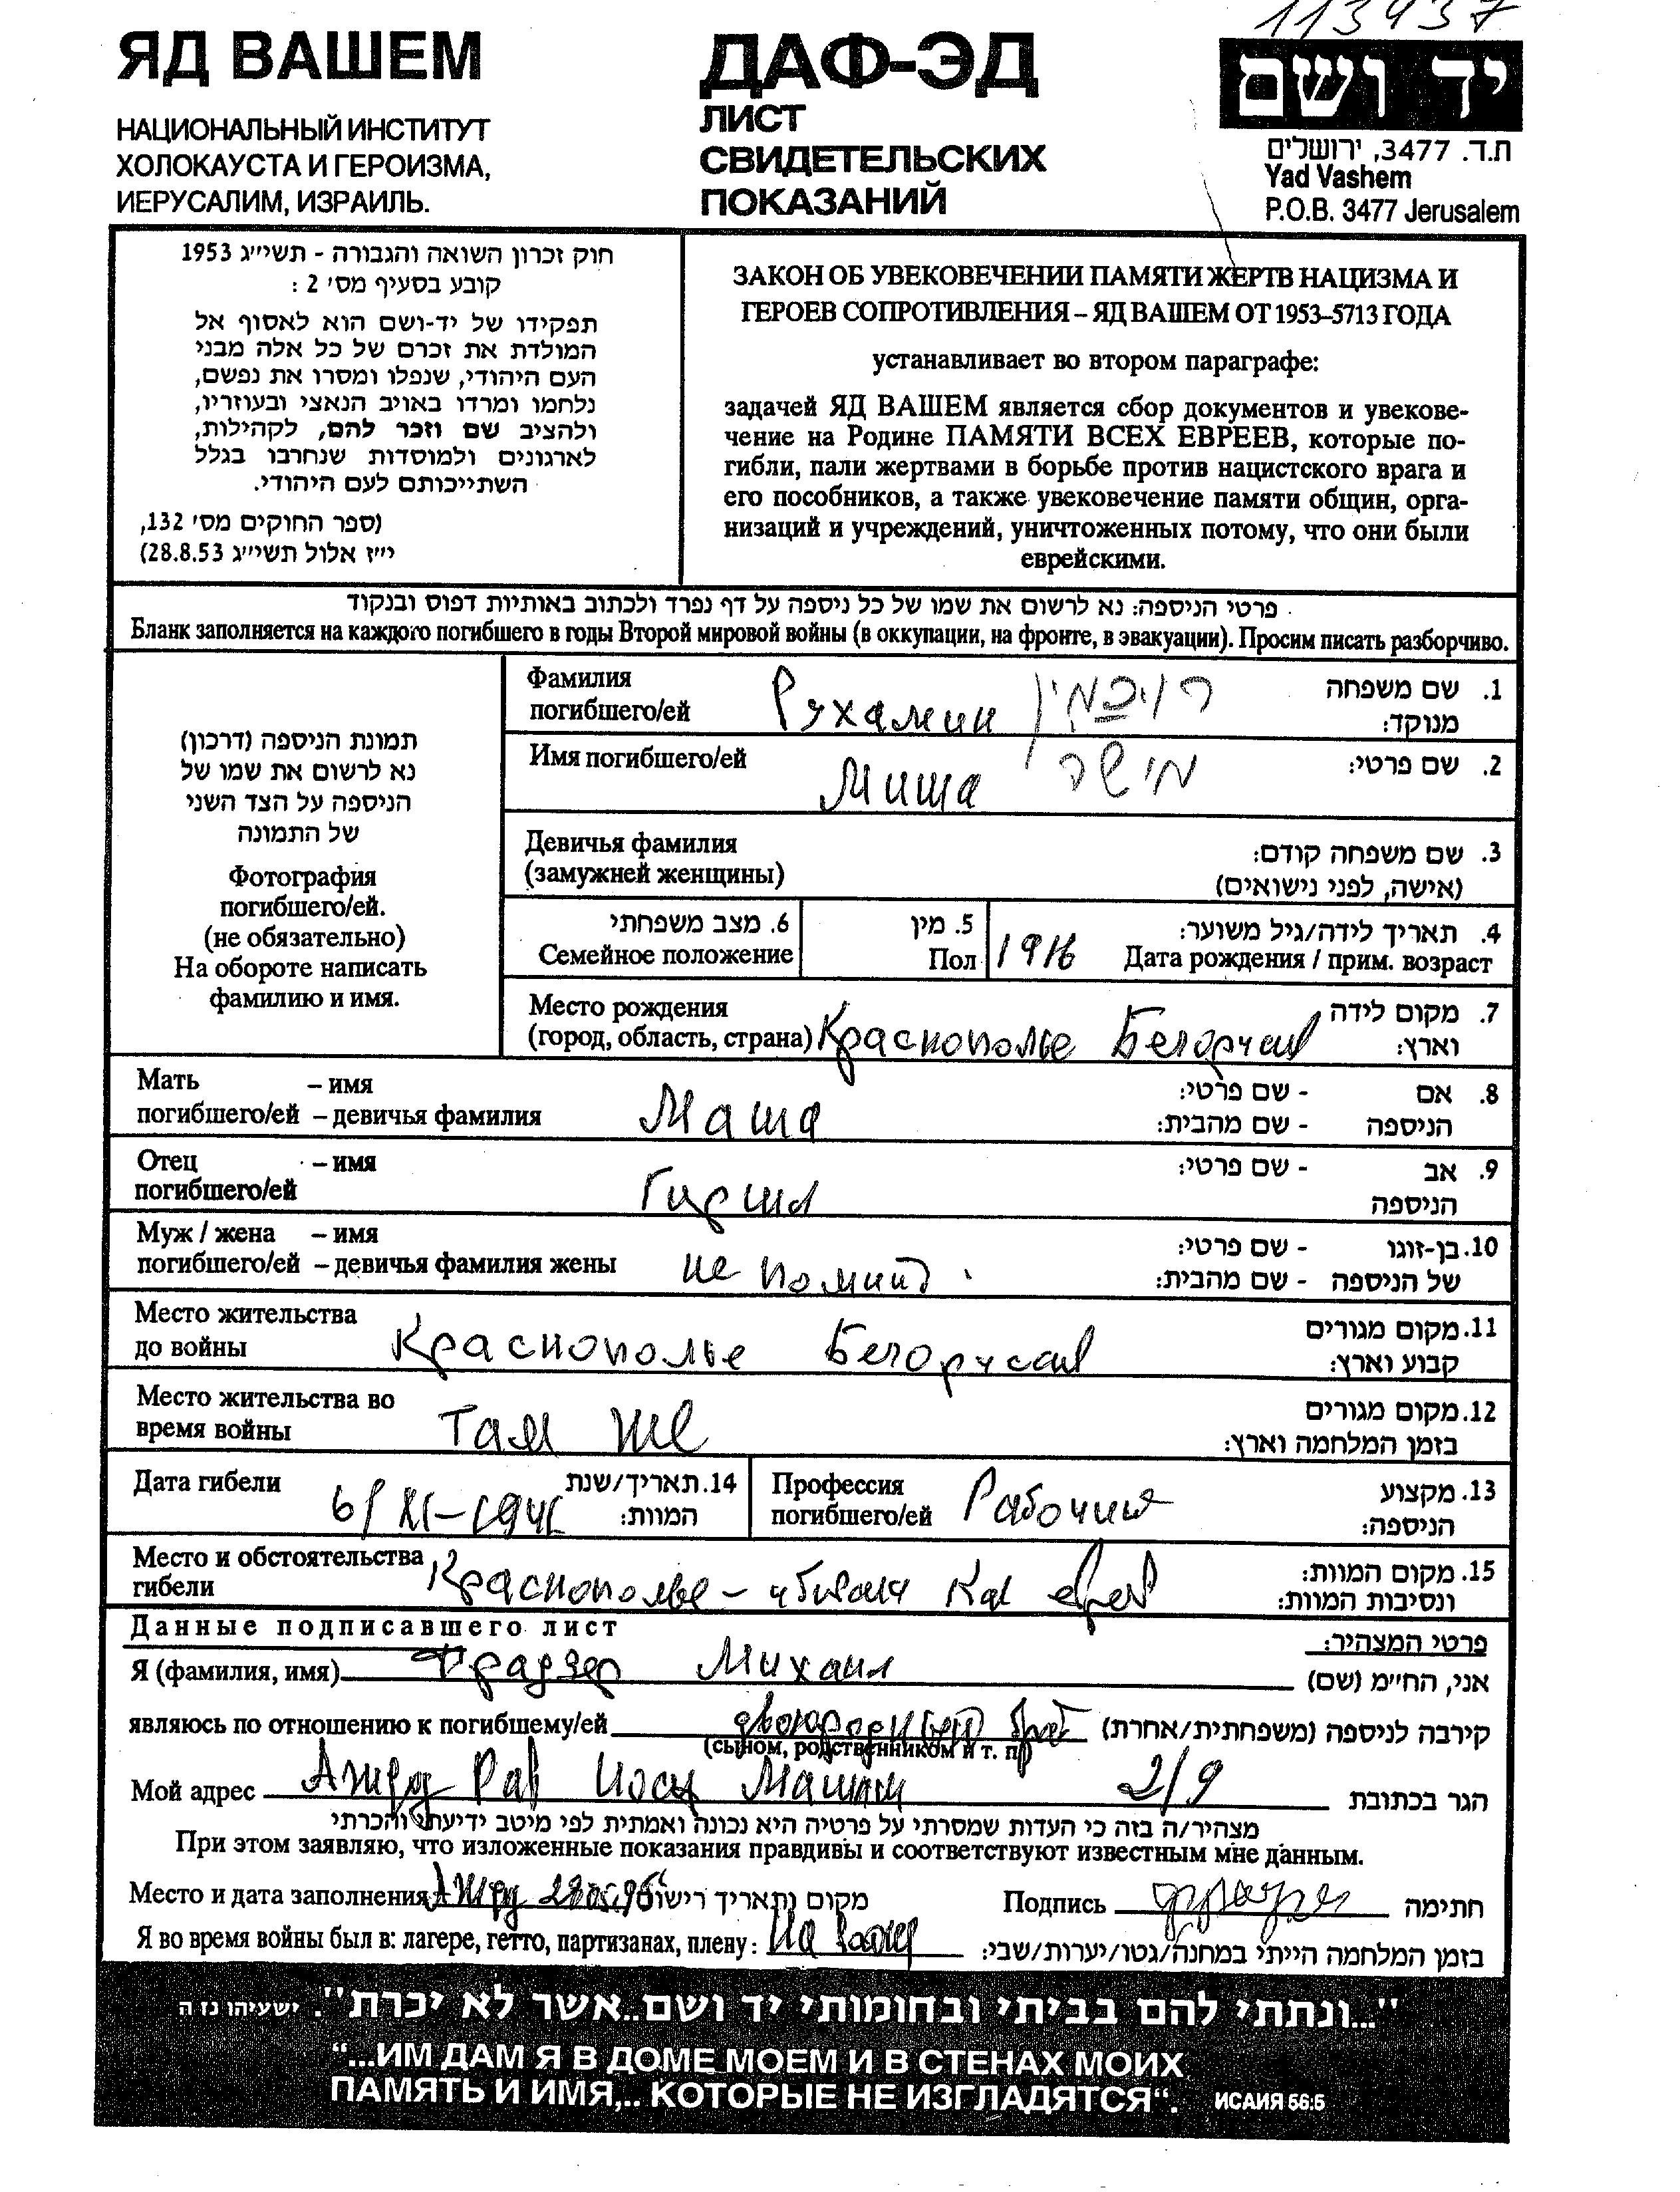 113937
ЯД ВАШЕМ
НАЦИОНАЛЬНЫЙ ИНСТИТУТ
ХОЛОКАУСТА И ГЕРОИЗМА,
ИЕРУСАЛИМ, ИЗРАИЛЬ.
ДАФ-ЭД
ЛИСТ
СВИДЕТЕЛЬСКИХ
ПОКАЗАНИЙ
יד ושם
ת.ד. 3477, ירושלים
Yad Vashem
P.O.B. 3477 Jerusalem
חוק זכרון השואה והגבורה - תשי״ג 1953
קובע בסעיף מס׳ 2 :
תפקידו של יד-ושם הוא לאסוף אל
המולדת את זכרם של כל אלה מבני
העם היהודי, שנפלו ומסרו את נפשם,
נלחמו ומרדו באויב הנאצי ובעוזריו,
ולהציב שם וזכר להם, לקהילות,
לארגונים ולמוסדות שנחרבו בגלל
השתייכותם לעם היהודי.
(ספר החוקים מס׳ 132,
י״ז אלול תשי״ג 28.8.53)
ЗАКОН ОБ УВЕКОВЕЧЕНИИ ПАМЯТИ ЖЕРТВ НАЦИЗМА И
ГЕРОЕВ СОПРОТИВЛЕНИЯ – ЯД ВАШЕМ ОТ 1953–5713 ГОДА
устанавливает во втором параграфе:
задачей ЯД ВАШЕМ является сбор документов и увекове-
чение на Родине ПАМЯТИ ВСЕХ ЕВРЕЕВ, которые по-
гибли, пали жертвами в борьбе против нацистского врага и
его пособников, а также увековечение памяти общин, орга-
низаций и учреждений, уничтоженных потому, что они были
еврейскими.
פרטי הניספה: נא לרשום את שמו של כל ניספה על דף נפרד ולכתוב באותיות דפוס ובנקוד
Бланк заполняется на каждого погибшего в годы Второй мировой войны (в оккупации, на фронте, в эвакуации). Просим писать разборчиво.
תמונת הניספה (דרכון)
נא לרשום את שמו של
הניספה על הצד השני
של התמונה
Фотография
погибшего/ей.
(не обязательно)
На обороте написать
фамилию и имя.
Фамилия погибшего/ей Рухамин רוכמין 1. שם משפחה
מנוקד:
Имя погибшего/ей Миша מישה 2. שם פרטי:
Девичья фамилия 3. שם משפחה קודם:
(замужней женщины) (אישה, לפני נישואים)
6. מצב משפחתי 5. מין 4. תאריך לידה/גיל משוער:
Семейное положение Пол 1916 Дата рождения / прим. возраст
Место рождения 7. מקום לידה
(город, область, страна) Краснополье Белорусия וארץ:
Мать – имя 8. אם - שם פרטי:
погибшего/ей – девичья фамилия Маша הניספה - שם מהבית:
Отец – имя 9. אב - שם פרטי:
погибшего/ей Гирш הניספה
Муж / жена – имя 10. בן-זוגו - שם פרטי:
погибшего/ей – девичья фамилия жены не помню של הניספה - שם מהבית:
Место жительства 11. מקום מגורים
до войны Краснополье Белоруссия קבוע וארץ:
Место жительства во 12. מקום מגורים
время войны Там же בזמן המלחמה וארץ:
Дата гибели 6/XI-1941 14. תאריך/שנת
המוות:
Профессия 13. מקצוע
погибшего/ей Рабочий הניספה:
Место и обстоятельства 15. מקום המוות:
гибели Краснополье – убивали как еврея ונסיבות המוות:
Данные подписавшего лист פרטי המצהיר:
Я (фамилия, имя) Фрадзер Михаил אני, הח״מ (שם)
являюсь по отношению к погибшему/ей двоюродный брат קירבה לניספה (משפחתית/אחרת)
(сыном, родственником и т. п)
Мой адрес Ашдод Рав 2/9 הגר בכתובת
מצהיר/ה בזה כי העדות שמסרתי על פרטיה היא נכונה ואמתית לפי מיטב ידיעתי והכרתי
При этом заявляю, что изложенные показания правдивы и соответствуют известным мне данным.
Место и дата заполнения Ашдод מקום ותאריך רישום Подпись חתימה
Я во время войны был в: лагере, гетто, партизанах, плену: בזמן המלחמה הייתי במחנה/גטו/יערות/שבי:
"...ונתתי להם בביתי ובחומותי יד ושם..אשר לא יכרת". ישעיהו נו ה
“...ИМ ДАМ Я В ДОМЕ МОЕМ И В СТЕНАХ МОИХ
ПАМЯТЬ И ИМЯ,.. КОТОРЫЕ НЕ ИЗГЛАДЯТСЯ“. ИСАИЯ 56:5